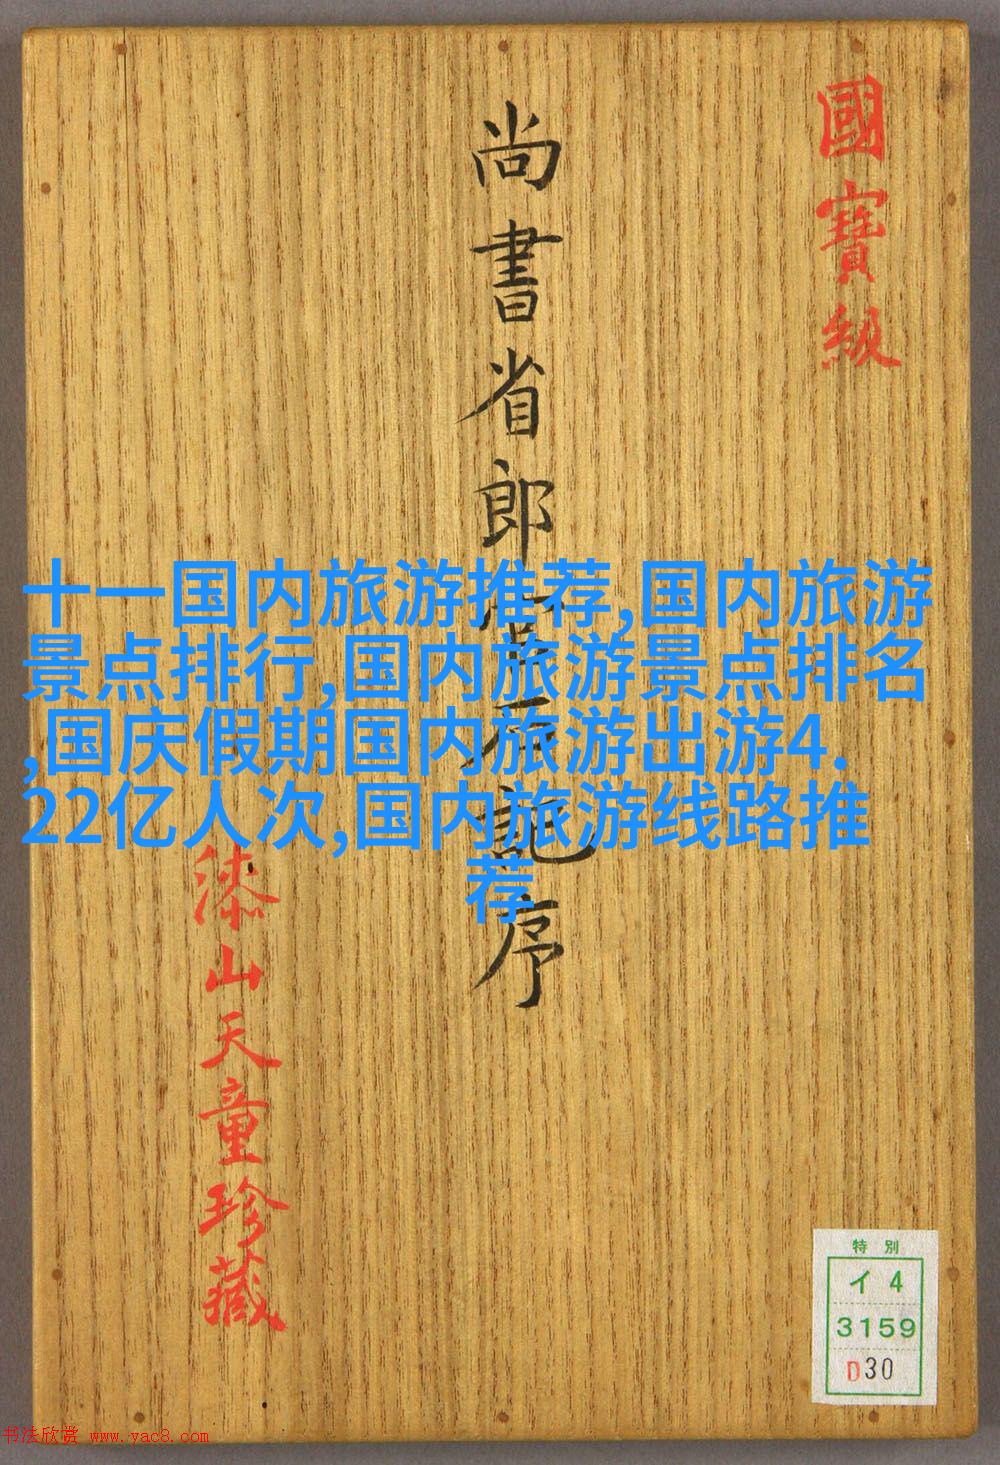 國寶級
尚書省郎官石記序
漆山天童珍藏
十一国内旅游推荐,国内旅游
景点排行,国内旅游景点排名
,国庆假期国内旅游出游4.
22亿人次,国内旅游线路推
荐
特別
イ4
3159
D30
书法欣赏 www.yac8.com